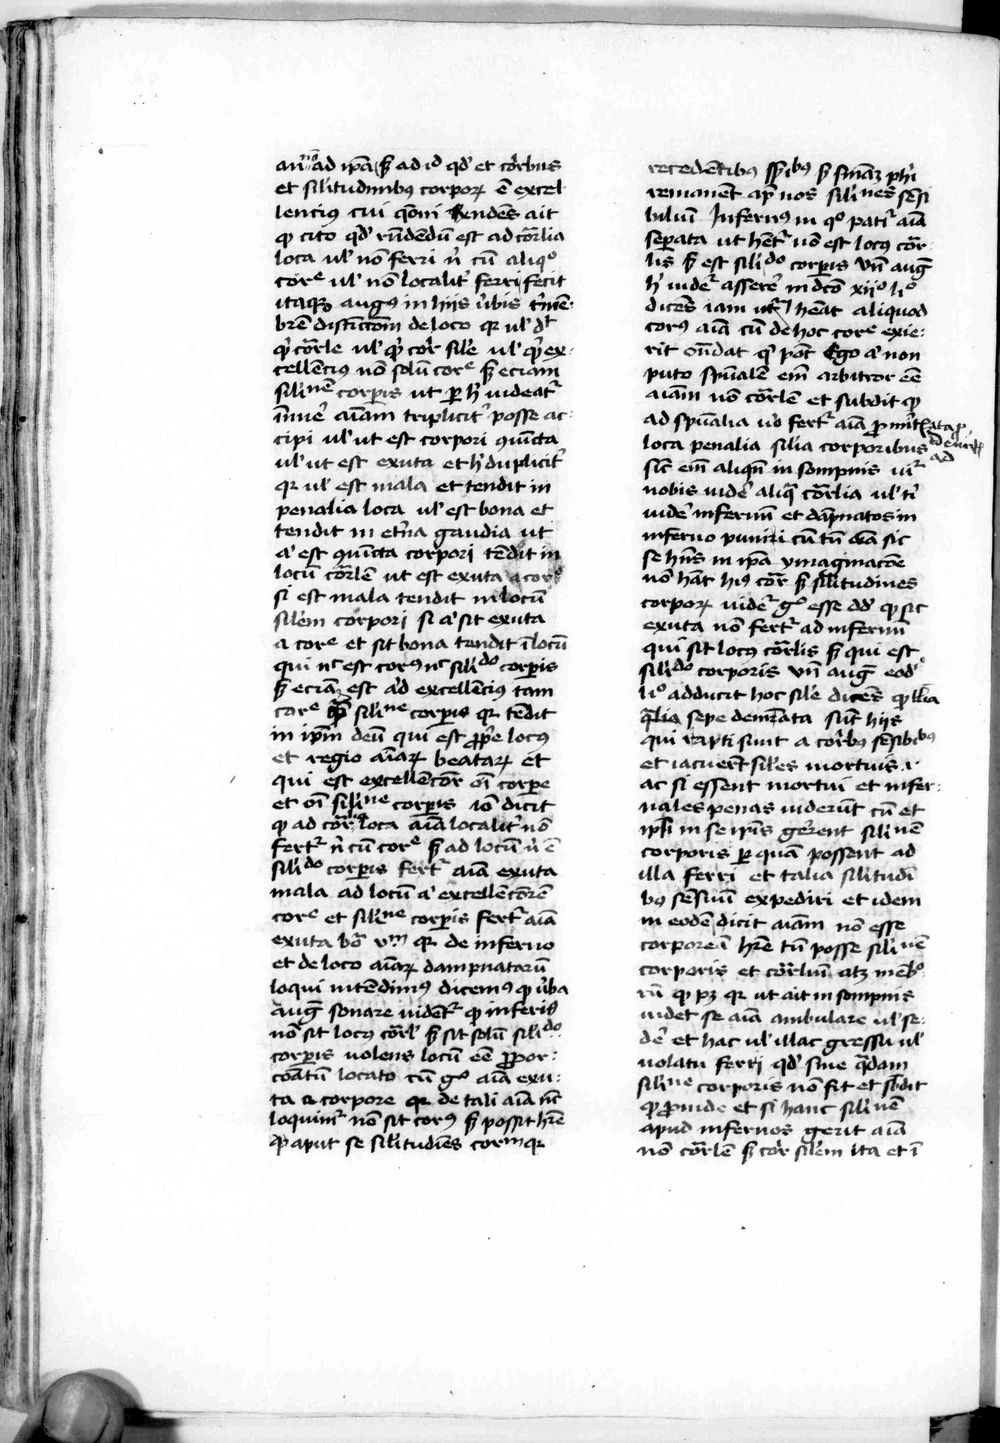 ad ip̄a ſ ad id qd' et cor̄bus
et silitudinibꝰ corporꝝ ē excel-
lenciꝰ cui q̄oni Rn̄dens ait
ꝙ cito qd' rn̄dendū est ad cōrlia
loca ul' nō ferri n̄ cū aliqo
core ul' nō localit' ferri fecit
itaqꝫ augꝰ in hiis ūbis t'mē-
brē distīctōm de loco qr ul' dr
qͥ cōrle ul' qͥ cor' sile ul' qͥ ex-
cellēciꝰ nō solū core ſ eciam
silinē corpis ut p h' uideatr
īnue' aīam triplicit' posse ac-
cipi ul' ut est corpori ꝯiūcta
ul' ut est exuta et h' duplicit'
qr ul' est mala et tendit in
penalia loca ul' est bona et
tendit in et'na gaudia ut
a' est ꝯiūcta corpori tēdit in
locū cōrlē ut est exuta a core
si est mala tendit in locū
silem corpori si a' sit exuta
a core et sit bona tendit ī locū
qui nͨ est corꝰ nͨ silido corpis
ſ eciā est ad excellēciꝰ tam
core silīne corpis qr tēdit
in ip̄m deū qui est ꝓpe locꝰ
et regio aīarꝝ beatarꝝ et
qui est excellēcōr oī corpe
et oī siline corpis iō dicit
ꝙ ad cōr loca aīa localit' nō
fertr n̄ cū core ſ ad locū n̄ ē
silido corpis fertr aīa exuta
mala ad locū a' excellēcōrē
core et siline corpis fertr aīa
exuta bō vm qr de inferno
et de loco aīarꝝ dampnatarū
loqui intēdimꝰ dicemꝰ ꝙ ūba
auḡ sonare uidentr ꝙ inferis
nō sit locꝰ cōrl' ſ sit solū silido
corpis uolens locū eē ꝓpor-
cōatū locato cū go aīa exu-
ta a corpore qr de tali aīa nͨ
loquimr nō sit corꝰ ſ possit hr̄e
aput se silitudīes cormqr
recedētibꝰ sp̄ibꝰ ſ sn̄iaꝫ ph'i
remanēt ap nos silines sēsi
biliū Infernꝰ in qo patir aīa
sepata ut hetr nō est locꝰ cōr-
lis ſ est silido corpis vn̄ auḡ
h' uidetr assere' in dc̄o xiio lio
dicēs iam utr heāt aliquod
corꝰ aīa cū de hoc core exie-
rit on̄dat qͥ pōt Ego a' non
puto sp̄ualē em̄ arbitror eē
aīam nō cōrlē et subdit ꝙ
ad sp̄ualia u'o fertr aīa ꝓ m'it
loca penalia silia corporibus
ad
sic em̄ aliqn̄ in sompnis uir
nobis uide' aliq̄ cōrlia ul' ti'
uide' infernū et dāpnatos in
inferno puniri cū tn̄ oīa sic
se hn̄s in ip̄a ymaginacōe
nō hāt hiꝰ cōr ſ silitudines
corporꝝ uidetr go esse dd' ꝙ sic
exuta nō fertr ad infernū
qui sit locꝰ cōrlis ſ qui est
silido corporis vn̄ auḡ eod'
lio adducit hoc sile dicēs ꝙ
q̄lia sepe demr̄ata sūt hiis
qui rapti sunt a cor̄bꝰ sēsibibus
et iacuerūt siles mortuis r
ac si essent mortui et infer-
nales penas uiderūt cū et
ip̄i in se ip̄is gererent silinē
corporis p quā possent ad
illa ferri et talia silitudi
bꝰ sēsiuū expediri et idem
in eodē dicit aīam nō esse
corporeā hr̄e tn̄ posse silinē
corporis et cōrliū atꝫ mēbo-
rū ꝙ pꝫ qr ut ait in sompnis
uidet se aīa ambulare ul' se-
de' et hac ul' illac gressu ul'
uolatu ferri qd' sine q̄dam
siline corporis nō fit et sb̄dit
ꝙ ꝓinde et si hanc silinē
apud infernos gerit aīa
nō cōrlē ſ cōr silem ita et ī